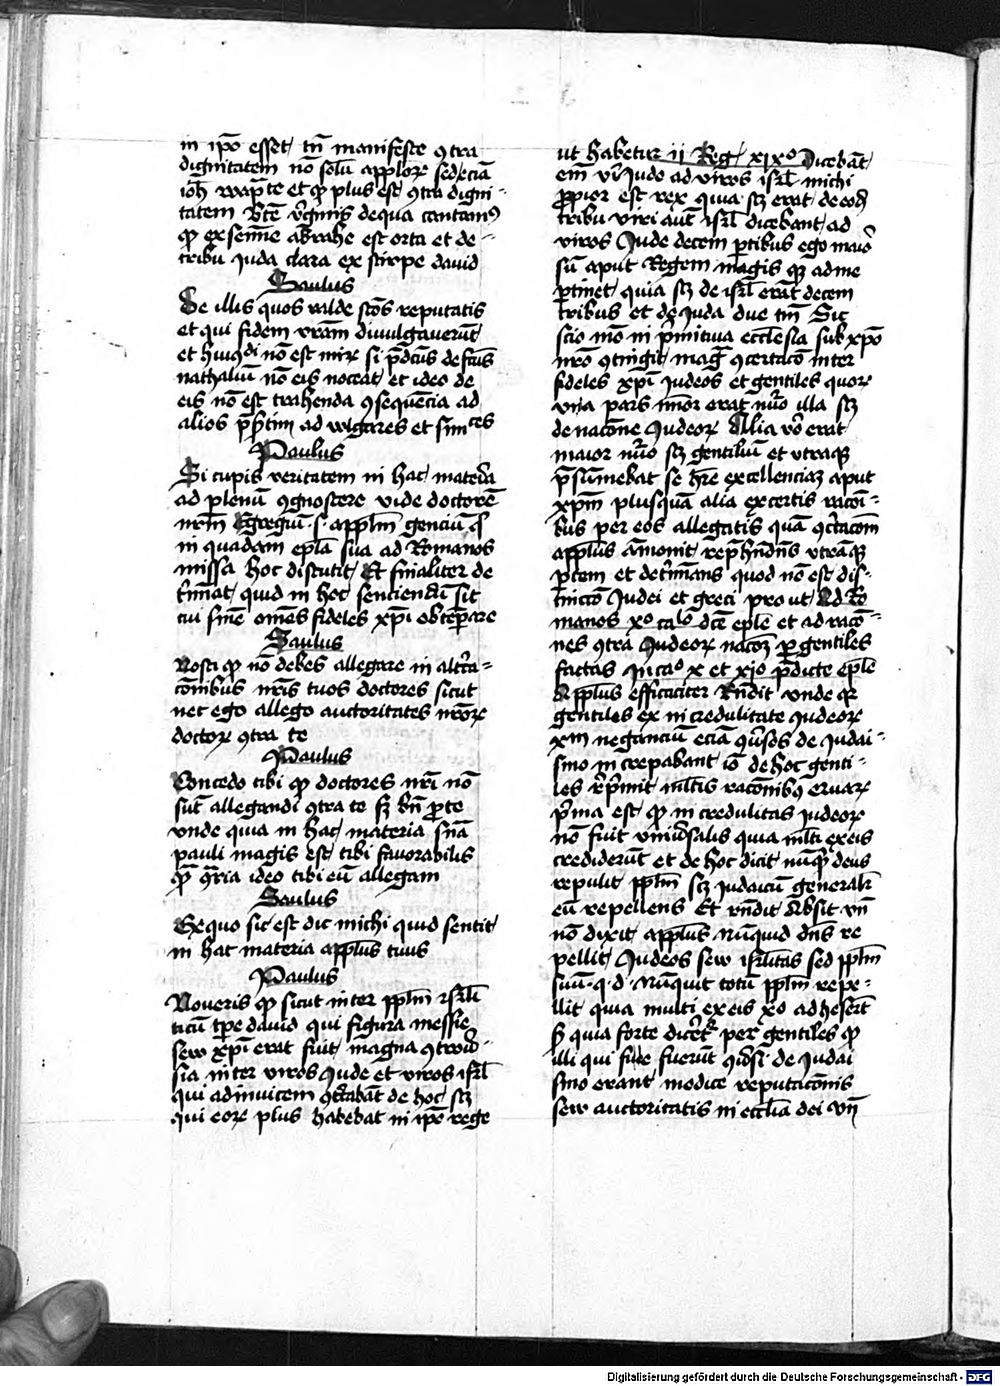 in ip̄o esset tn̄ manifeste ꝯtra
dignitatem nō solū appl̄oꝝ sed eciā
ioh̄ bap̄te et ꝙ plus est ꝯtra digni-
tatem bt̄e v̄gīnis de qua cantamꝰ
ꝙ ex semīe abrahe est orta et de-
tribu iuda clara ex stirpe dauid
Saulus
De illis quos valde sc̄os reputatis
et qui fidem vr̄am diuulgauerūt
et huiꝰdi nō est mirū si p̄dc̄us defcūs
nathaliū nō eis noceat et ideo de
eis nō est trahenda ꝯsequēcia ad
alios p̄s̄tim ad vulgares et simꝑces
Paulus
Si cupis veritatem in hac mater̄a
ad plenū ꝯgnoscere vide doctorē
nr̄m egregiū .s. appl̄m genciū ꝗ
in quadam epl̄a sua ad Romanos
missa hoc discutit Et finaliter de
t̄minat quid in hoc senciendū sit
cui sine om̄es fideles xp̄i obtēꝑare
Saulus
Nosti ꝙ nō debes allegare in alt̄ca-
cōnibus nr̄is tuos doctores sicut
nec ego allego auctoritates nr̄oꝝ
doctoꝝ ꝯtra te
Paulus
Concedo tibi ꝙ doctores nr̄i nō
sūt allegandi ꝯtra te sꝫ bn̄ ꝓ te
vnde quia in hac materia sn̄ia
pauli magis est tibi fauorabilis
ꝙ̄ ꝯ̄ria ideo tibi eū allegam
Saulus
Ex quo sic est dic michi quid sentit
in hac materia appl̄us tuus
Paulus
Noueris ꝙ sicut inter ppl̄m isrl̄i
ticū tꝑe dauid qui figura messie
seu xp̄i erat fuit magna ꝯtrou̾-
sia inter viros Jude et viros isrl̄
qui adinuicem ꝯt̄tabāt de hoc scꝫ
qui eoꝝ plus habebat in ip̄o rege
ut habetur ii Reg xixº Dicebāt
em̄ vi̾ Jude ad viros isrl̄ michi
ꝓpior est rex quia scꝫ erat de eod̄
tribu viri aut̄ isrl̄ dicebant ad
viros Jude decem ꝑtibus ego maio̾
sū aput Regem magis ꝙ ad me
ꝑtinet quia scꝫ de isrl̄ erāt decem
tribus et de Juda due tm̄ Sic
scio mō in p̄mitiua ecclesia sub xp̄o
nr̄o ꝯtingit mag̾ ꝯcertacō inter
fideles xp̄i Judeos et gentiles quoꝝ
vna pars mīor erat nūo illa scꝫ
de nacōne Judeoꝝ Alia v̾o erat
maior nūo scꝫ gentiliū et utraqꝫ
p̄sūmebat se h̄re excellenciaꝫ aput
xp̄m plusquā alia ex certis racōi-
bus per eos allegatis quā ꝯt̄tacōm
appl̄us āmonit rep̄hn̄dn̄s vtrāqꝫ
ꝑtem et det̄mīans quod nō est dis-
tinctō Judei et greci prout Ad Ro
manos xº caᵒ dc̄e epl̄e et ad racō-
nes ꝯtra Judeoꝝ nacōꝫ ꝑ gentiles
factas in caº x et xiº p̄dicte epl̄e
Appl̄us efficaciter Rn̄dit vnde qꝛ
gentiles ex incredulitate Judeoꝝ
xm̄ neganciū eciā ꝯv̾sos de Judai-
smo increpabant iō de hoc genti-
les rep̄mit ml̄tis racōnibꝰ quaꝝ
p̄ma est ꝙ incredulitas Judeoꝝ
nō fuit vniu̾salis quia ml̄ti ex eis
crediderūt et de hoc dicit nūqd̄ deus
repulit ppl̄m scꝫ iudaicū generalr̄
eū repellens Et rn̄dit Absit vn̄
nō dixit appl̄us nūquid dn̄s re
pellit Judeos seu isrl̄itas sed ppl̄m
suū .q.d. Nūquit totū ppl̄m repe-
llit quia multi ex eis xº adheserūt
Sꝫ quia forte diceret̾ per gentiles ꝙ
illi qui sine fuerūt ꝯv̾si de Judai
smo erant modice reputacōnis
seu auctoritatis in eccl̄ia dei vn̄
Digitalisierung gefördert durch die Deutsche Forschungsgemeinschaft - DFG